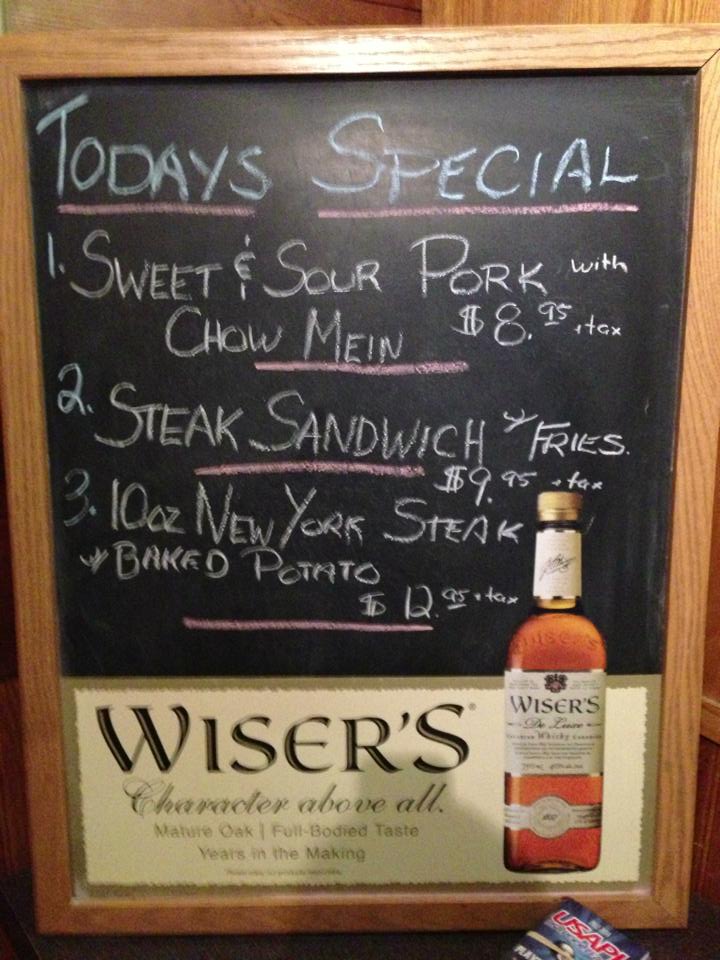 TODAYS SPECIAL
1. SWEET & SOUR PORK with
CHOW MEIN $8.95 +tax
2. STEAK SANDWICH w/ FRIES.
$9.95 +tax
3. 10oz NEW YORK STEAK
w/ BAKED POTATO
$12.95 +tax
WISER'S®
Character above all.
Mature Oak | Full-Bodied Taste
Years in the Making
WISER'S
WISER'S
De Luxe
Whisky
USAP